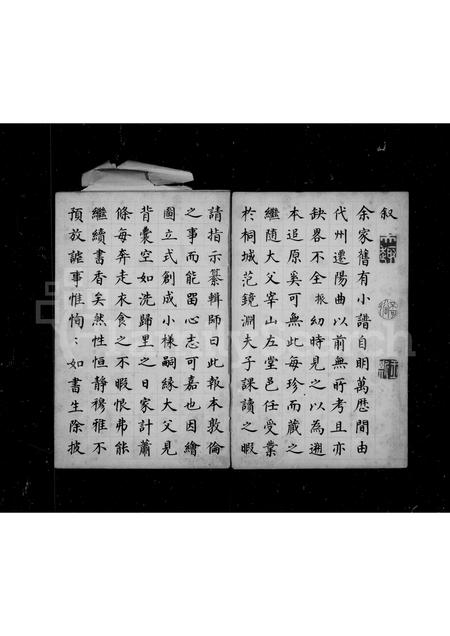 叙
余家舊有小譜自明萬歷間由
代州遷陽曲以前無所考且亦
缺畧不全振幼時見之以為遡
本追原奚可無此每珍而藏之
繼隨大父宰山左堂邑任受業
於桐城范鏡淵夫子課讀之暇
請指示纂輯師曰此報本敦倫
之事而能留心志可嘉也因繪
圖立式創成小樣嗣緣大父見
背囊空如洗歸里之日家計蕭
條每奔走衣食之不暇恨弗能
繼續書香矣然性恒靜穆雅不
預放誕事惟恂〻如書生除披